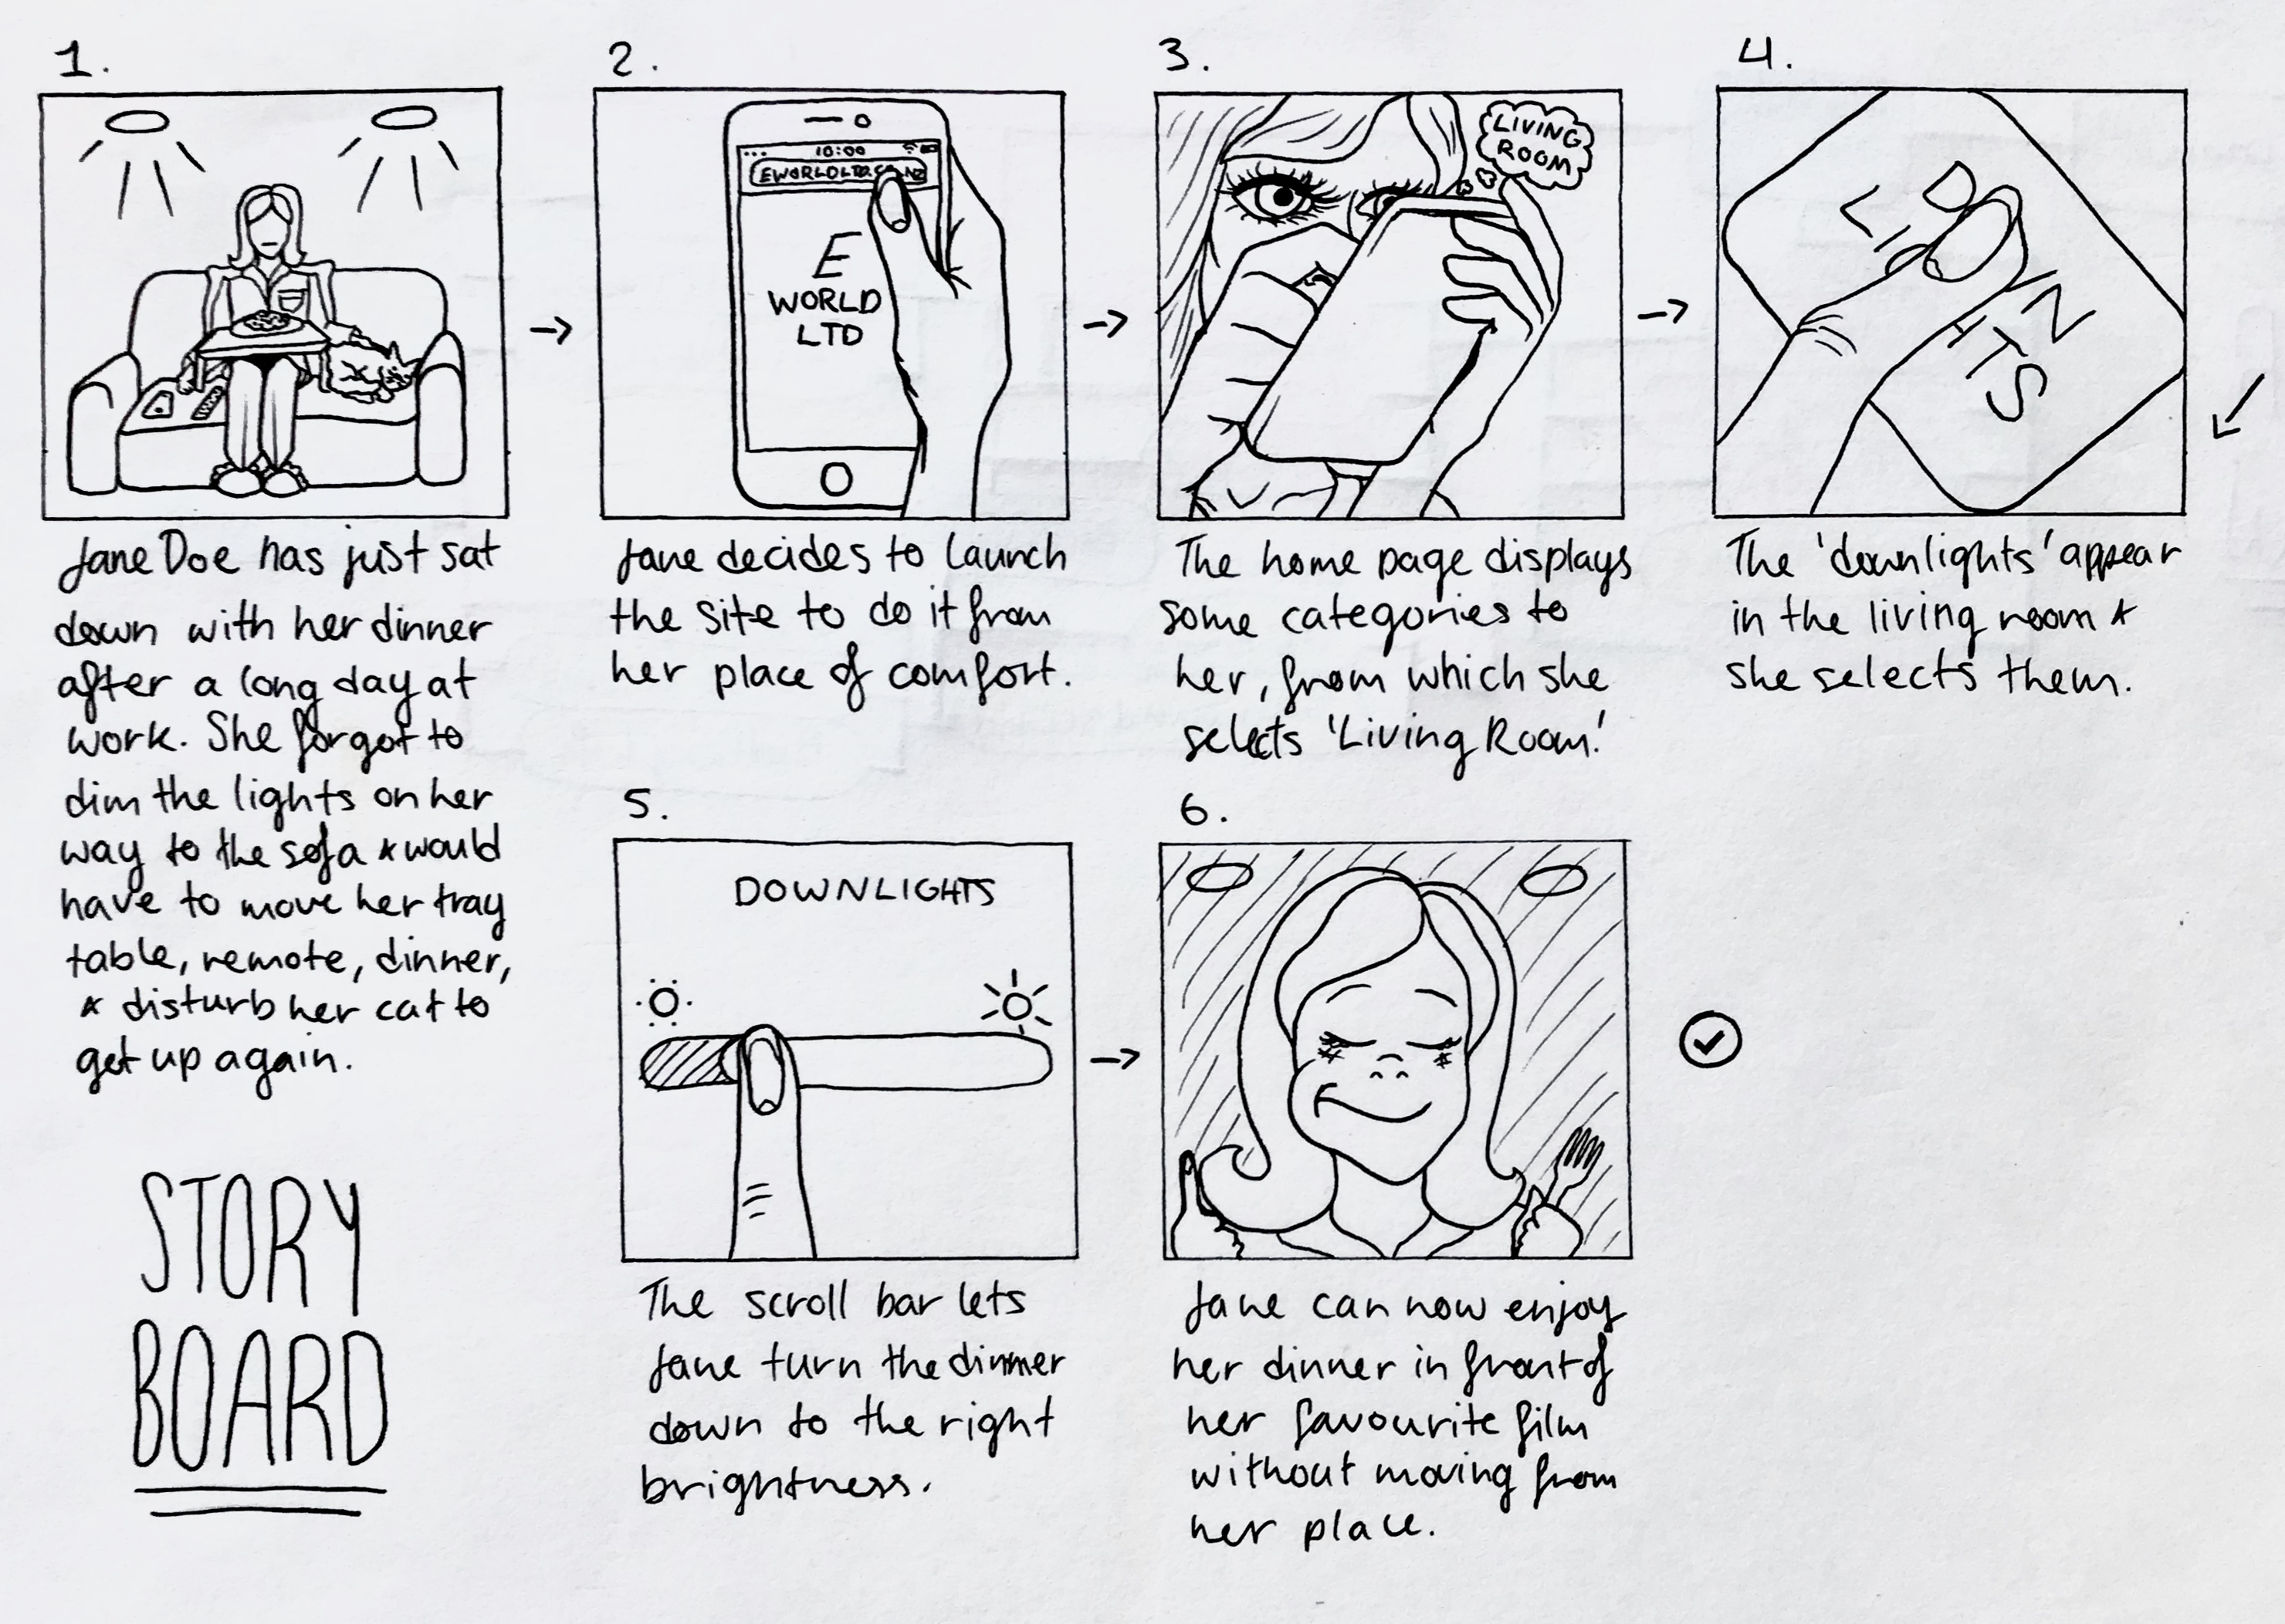 1.
Jane Doe has just sat
down with her dinner
after a long day at
work. She forgot to
dim the lights on her
way to the sofa & would
have to move her tray
table, remote, dinner,
& disturb her cat to
get up again.
2.
10:00
E
WORLD
LTD
Jane decides to launch
the site to do it from
her place of comfort.
3.
LIVING
ROOM
The home page displays
some categories to
her, from which she
selects 'Living Room.'
4.
DOWN
LIGHTS
The 'downlights' appear
in the living room &
she selects them.
5.
DOWNLIGHTS
The scroll bar lets
Jane turn the dimmer
down to the right
brightness.
6.
Jane can now enjoy
her dinner in front of
her favourite film
without moving from
her place.
STORY
BOARD